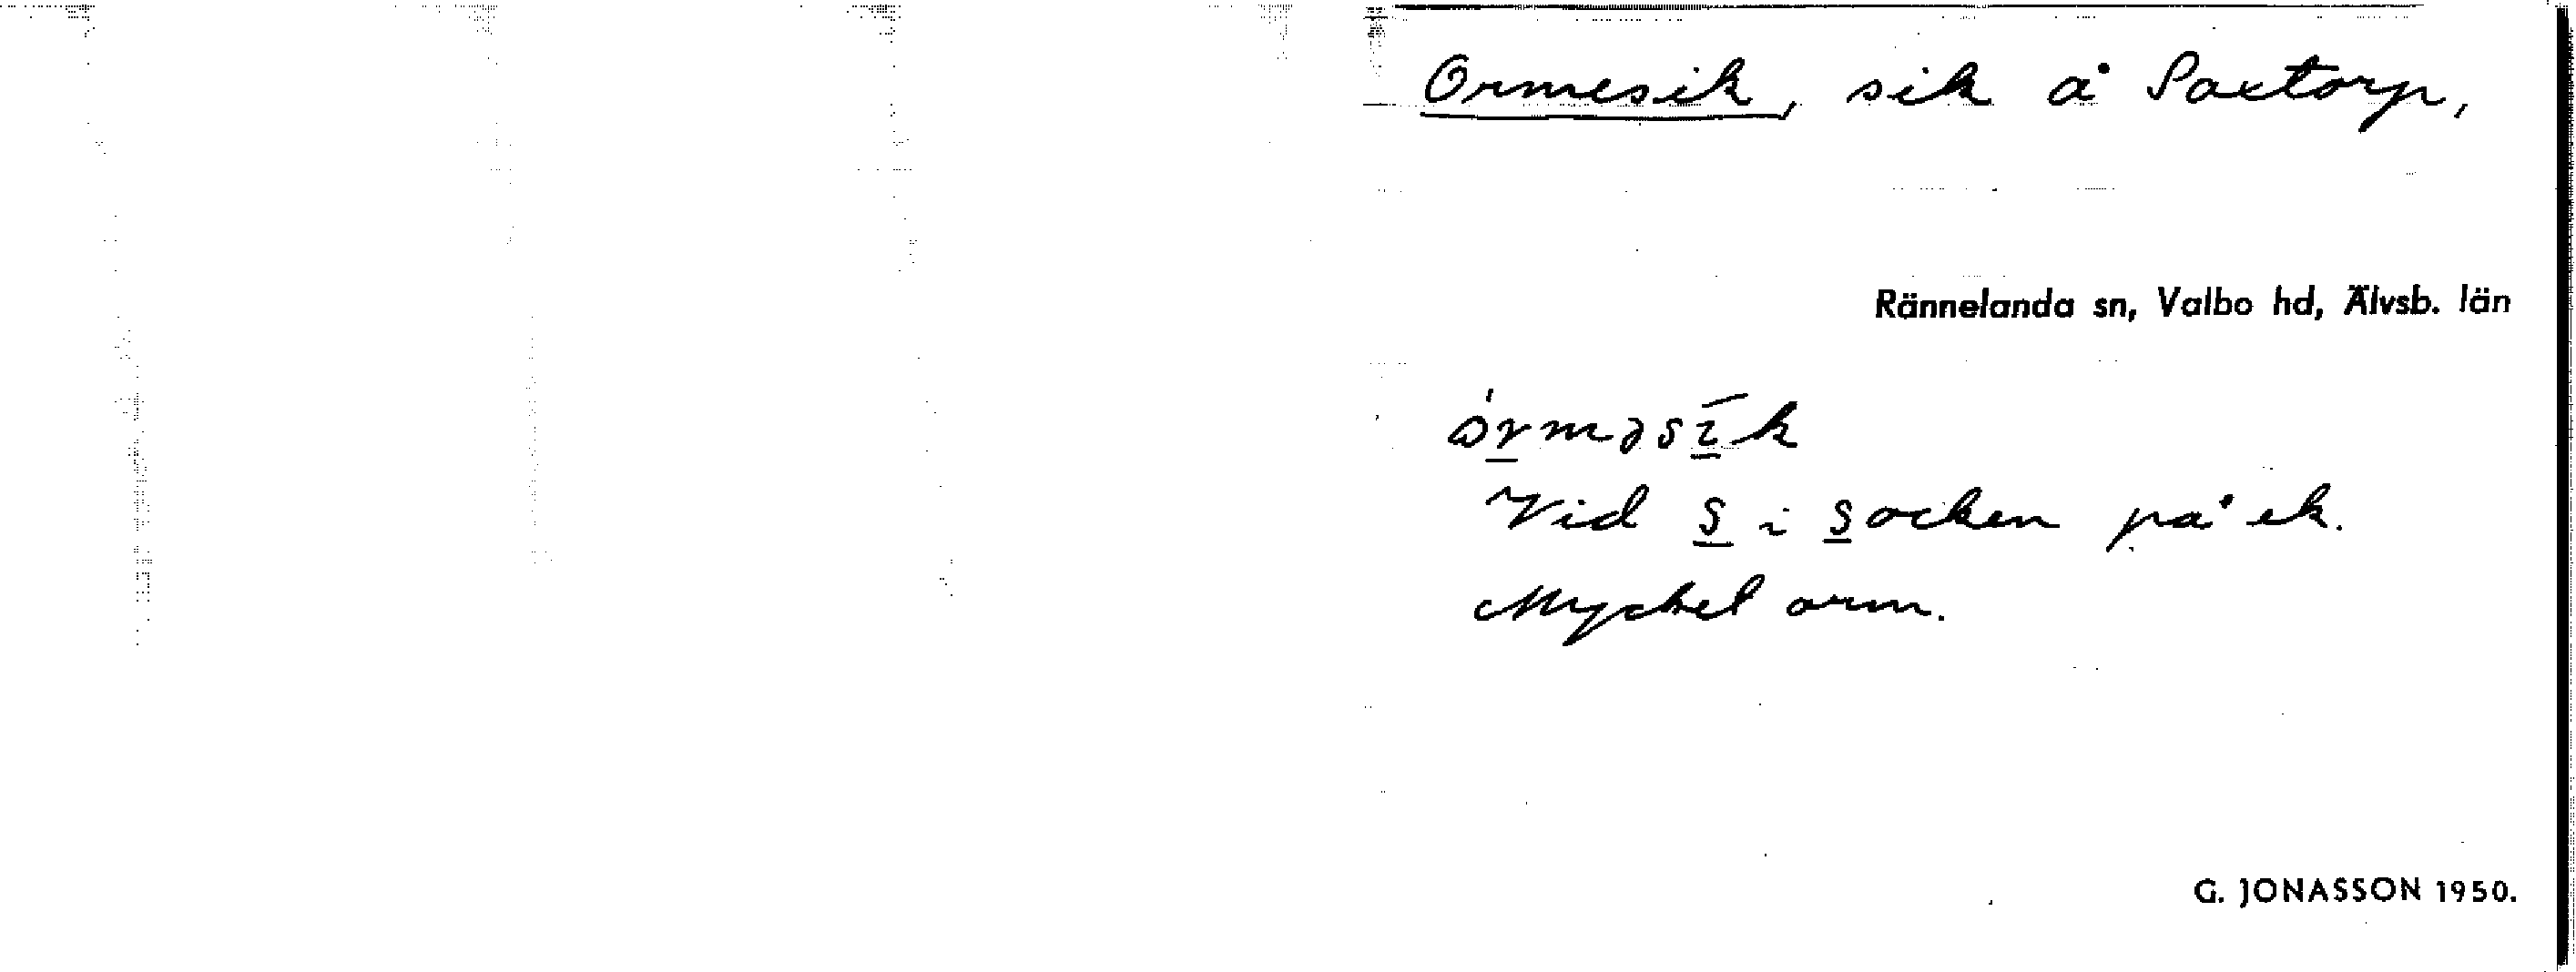 Ormesik, sik å Saxtorp,
Rännelanda sn, Valbo hd, Älvsb. län
òrməsīk
Vid S i Socken på ek.
Mycket orm.
G. JONASSON 1950.